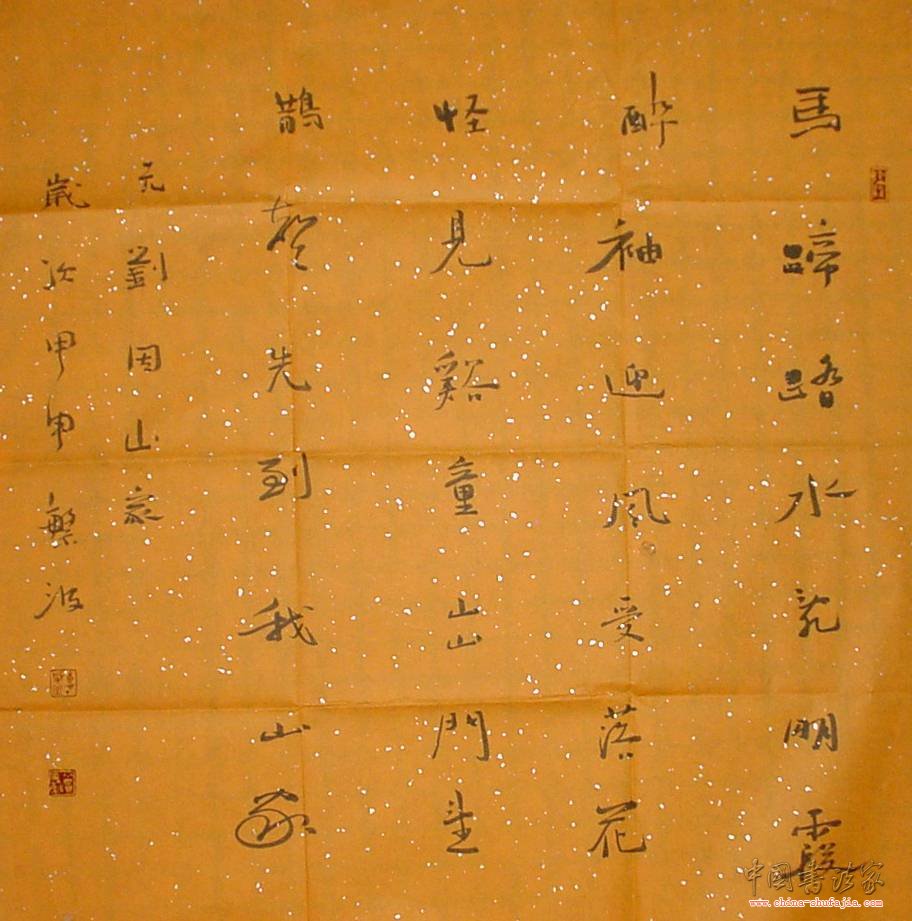 馬蹄踏水乱明霞
醉袖迎風受落花
怪見谿童出門望
鵲聲先到我山家
元劉因山家
歲次甲申繁波
中國書法家
www.china-shufajia.com